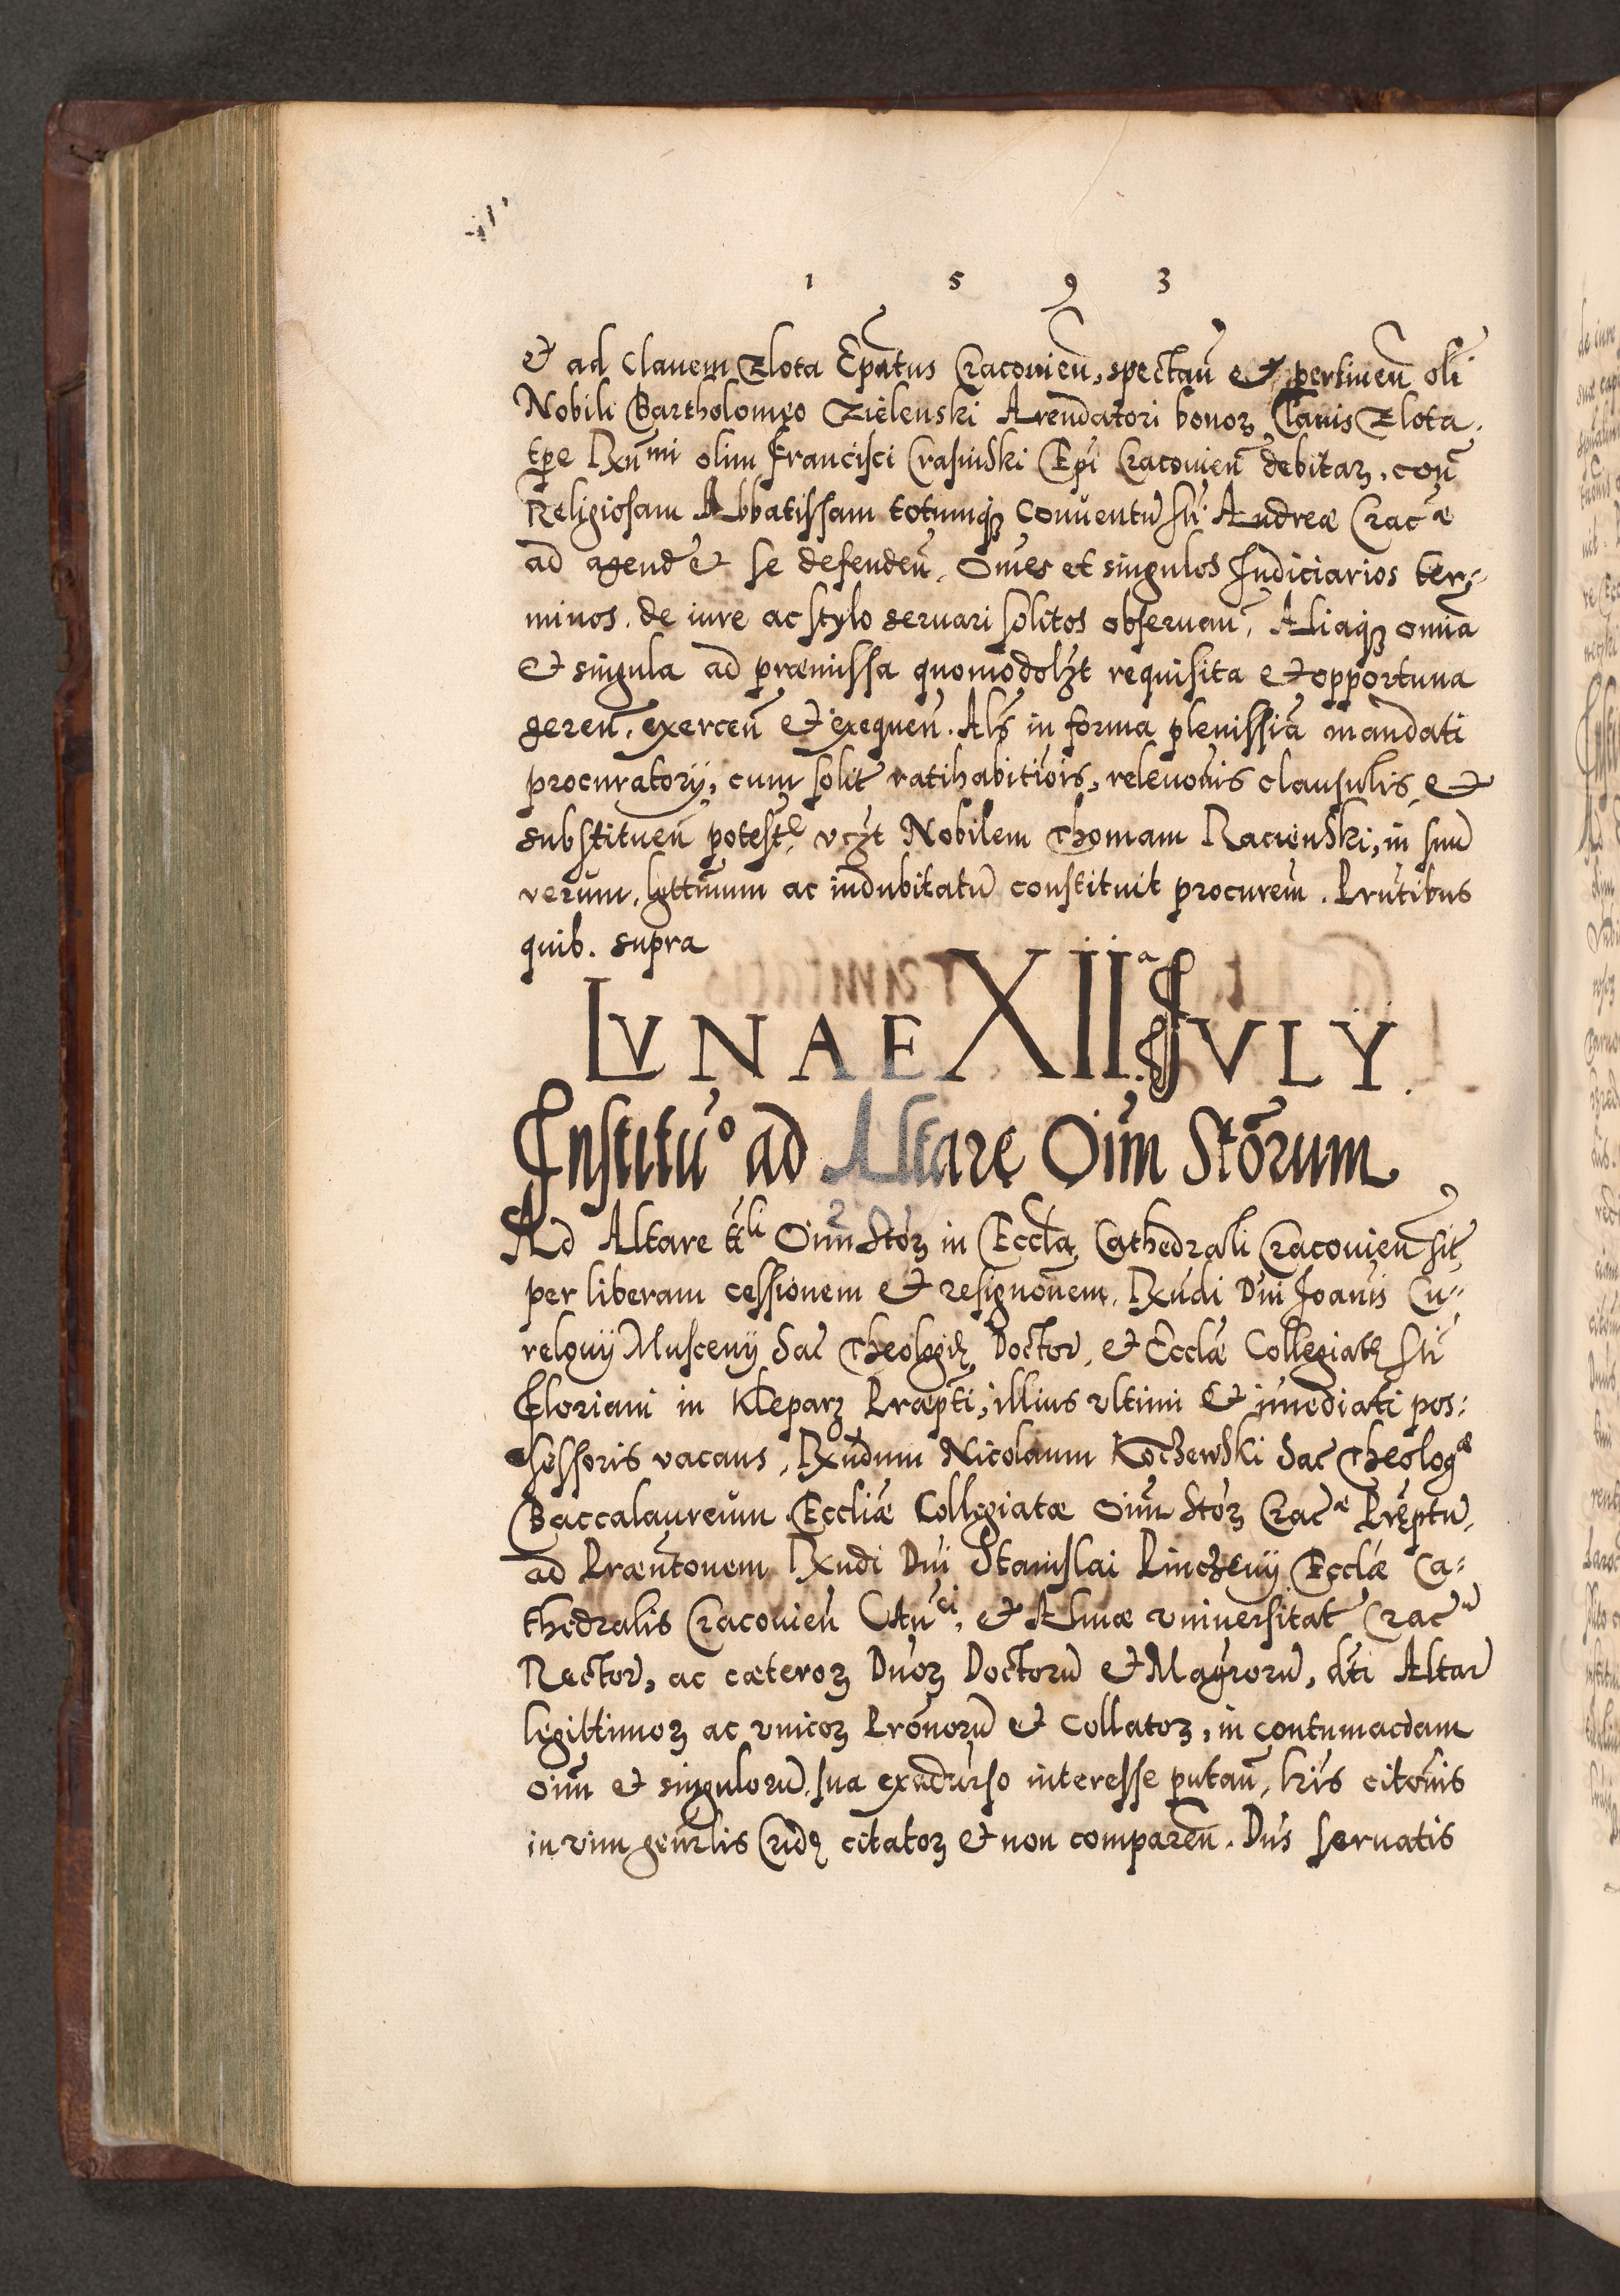 1 5 9 3
et ad Clauem Zlota Epātus Cracouien̄, spectan̄ et pertinen̄ oli
Nobili Bartholomęo Zielenski Arendatori bonoꝝ Clauis Zlota.
tp̄e Rxn̄mi olim Francisci Crasinski Ep̄i Cracouien̄ debitaꝝ, con̄
Religiosam Abbatissam totumqꝫ Conuentū sti Andreæ Cracæ
ad agend et se defenden̄, Om̄es et singulos Judiciarios ter-
minos, de iure ac stylo seruari solitos obseruan̄, Aliaqꝫ omīa
et singula ad præmissa quomodolꝫt requisita et opportuna
geren̄, exercen̄ et exequen̄. Al̄s in forma plenissīa mandati
procuratorij, cum solit ratihabitiōis, releuōnis clausulis, et
substituen̄ potest̄e vꝫt Nobilem Thomam Racienski, in suū
verum, lgttimum ac indubitatū constituit procurēm. Prn̄tibus
quib. supra
LVNAE XIIa JVLY.
Institu° ad Altare Oīm Stōrum
Ad Altare ttli Oim̄ Stoꝝ in Eccl̄a Cathedrali Cracouien̄ sit,
per liberam cessionem et resignōnem, Rxn̄di Dn̄i Joan̄is Cu-
relouij Musceny Sac Theologię Doctor, et Eccl̄æ Collegiatę sti
Floriani in Kleparz Præpti, illius vltimi et im̄ediati pos:
sessoris vacans, Rxn̄dum Nicolaum Koczewski Sac Theologæ
Baccalaureum Eccliæ Collegiatæ Oim̄ Stoꝝ Cracæ Pręptū,
ad Præn̄tōnem Rxn̄di Dn̄i Stanislai Pinczeuij Eccl̄æ Ca:
thedralis Cracouien̄ Can̄ci, et Almæ vniuersitat Crac
Rector, ac cæteroꝝ Dn̄oꝝ Doctorū et Magrorū, dti Altar
legittimoꝝ ac vnicoꝝ Prōnorū et Collatoꝝ, in contumaciam
oīm et singulorū, sua exaduerso interesse putan̄, lr̄is citōnis
in vim gen̄rlis Cridę citatoꝝ et non comparen̄. Dn̄s seruatis